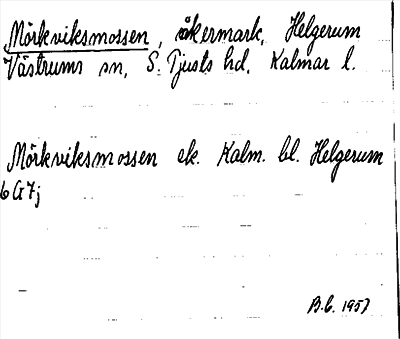 Mörkviksmossen, åkermark, Helgerum
Västrums sn, S. Tjusts hd, Kalmar l.
Mörkviksmossen ek. Kalm. bl. Helgerum
6G7j
B.C. 1957